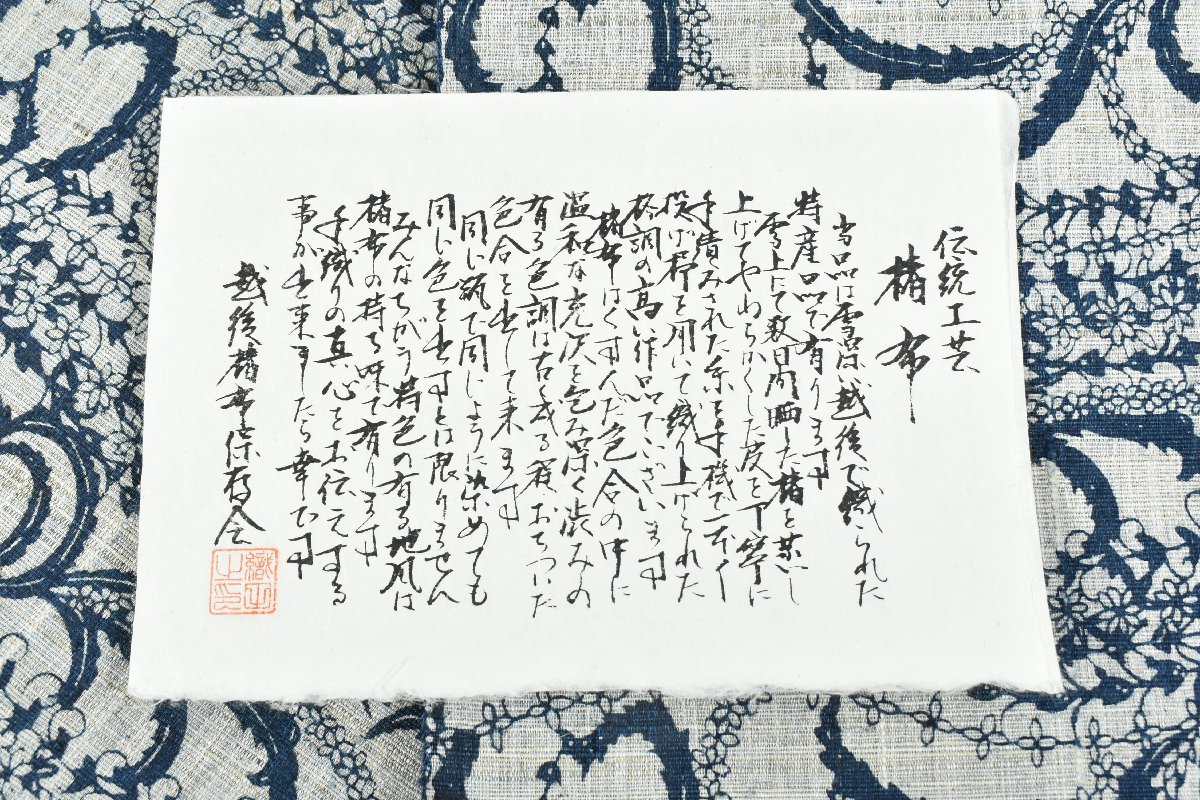 伝統工芸
楮布
当品は雪深い越後で織られた
特産品で有ります
雪上にて数日間晒した楮を蒸し
上げてやわらかくした皮を丁寧に
手績みされた糸を手機で一本一本
投げ杼を用いて織り上げられた
格調の高い作品でございます
楮布はくすんだ色合の中に
温和な光沢を包み深く渋みの
有る色調は古く成る程おちついた
色合を出して来ます
同じ瓶で同じように染めても
同じ色を出すとは限りません
みんなちがう特色の有る地風は
楮布の持る味で有ります
手織りの真心をお伝えする
事が出来ましたら幸です
越後楮布保存会